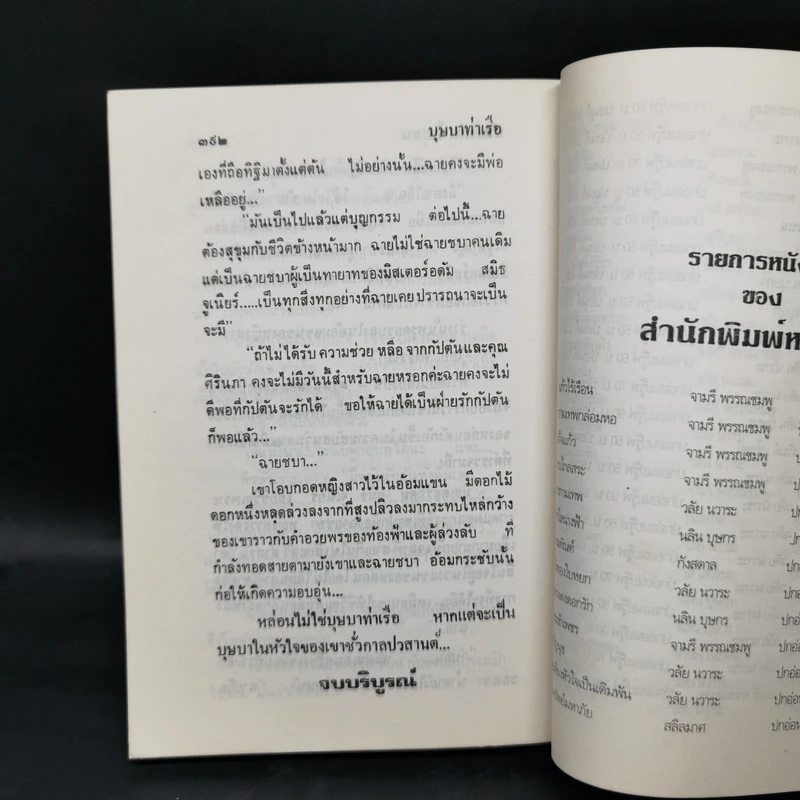 ๓๙๒ บุษบาท่าเรือ
เองที่ถือทิฐิมาตั้งแต่ต้น ไม่อย่างนั้น...ฉายคงจะมีพ่อ
เหลืออยู่...”
“มันเป็นไปแล้วแต่บุญกรรม ต่อไปนี้...ฉาย
ต้องสุขุมกับชีวิตข้างหน้ามาก ฉายไม่ใช่ฉายชบาคนเดิม
แต่เป็นฉายชบาผู้เป็นทายาทของมิสเตอร์อดัม สมิธ
จูเนียร์.....เป็นทุกสิ่งทุกอย่างที่ฉายเคยปรารถนาจะเป็น
จะมี”
“ถ้าไม่ได้รับ ความช่วย หลือ จากกัปตันและคุณ
ศิรินภา คงจะไม่มีวันนี้สำหรับฉายหรอกค่ะฉายคงจะไม่
ดีพอที่กัปตันจะรักได้ ขอให้ฉายได้เป็นฝ่ายรักกัปตัน
ก็พอแล้ว...”
“ฉายชบา...”
เขาโอบกอดหญิงสาวไว้ในอ้อมแขน มีดอกไม้
ดอกหนึ่งหลุดล่วงลงจากที่สูงปลิวลงมากระทบไหล่กว้าง
ของเขาราวกับคำอวยพรของท้องฟ้าและผู้ล่วงลับ ที่
กำลังทอดสายตามายังเขาและฉายชบา อ้อมกระชับนั้น
ก่อให้เกิดความอบอุ่น...
หล่อนไม่ใช่บุษบาท่าเรือ หากแต่จะเป็น
บุษบาในหัวใจของเขาชั่วกาลปวสานต์...
จบบริบูรณ์
รายการหนัง
ของ
สำนักพิมพ์
ก้วไร้เรือน จามรี พรรณชมพู
ามเทพกล่อมหอ จามรี พรรณชมพู
จามรี พรรณชมพู ป
จามรี พรรณชมพู ป
ามเทพ วลัย นวาระ ป
นางฟ้า นลิน บุษกร ปก
กังสดาล ปกอ
องใบหยก วลัย นวาระ ปกอ่
ดอกรัก นลิน บุษกร ปกอ่
เพชร จามรี พรรณชมพู ปกอ่อ
วลัย นวาระ ปกอ่อ
หัวใจเป็นเดิมพัน วลัย นวาระ ปกอ่อน
มหาภัย สลิลมาศ ปกอ่อน